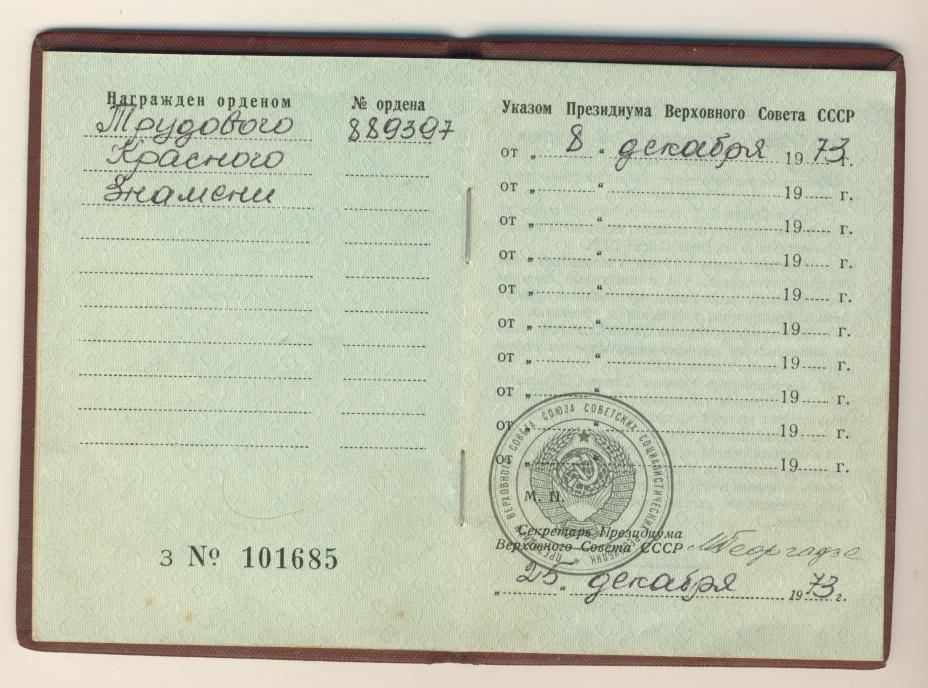 Награжден орденом
№ ордена
Трудового
889397
Красного
Знамени
З № 101685
Указом Президиума Верховного Совета СССР
от „ 8 “ декабря 1973 г.
от „ “ 19 г.
от „ “ 19 г.
от „ “ 19 г.
от „ “ 19 г.
от „ “ 19 г.
от „ “ 19 г.
от „ “ 19 г.
от „ “ 19 г.
от „ “ 19 г.
ПРЕЗИДИУМ ВЕРХОВНОГО СОВЕТА СОЮЗА СОВЕТСКИХ СОЦИАЛИСТИЧЕСКИХ РЕСПУБЛИК
М. П.
Секретарь Президиума
Верховного Совета СССР МГеоргадзе
„ 25 “ декабря 1973 г.